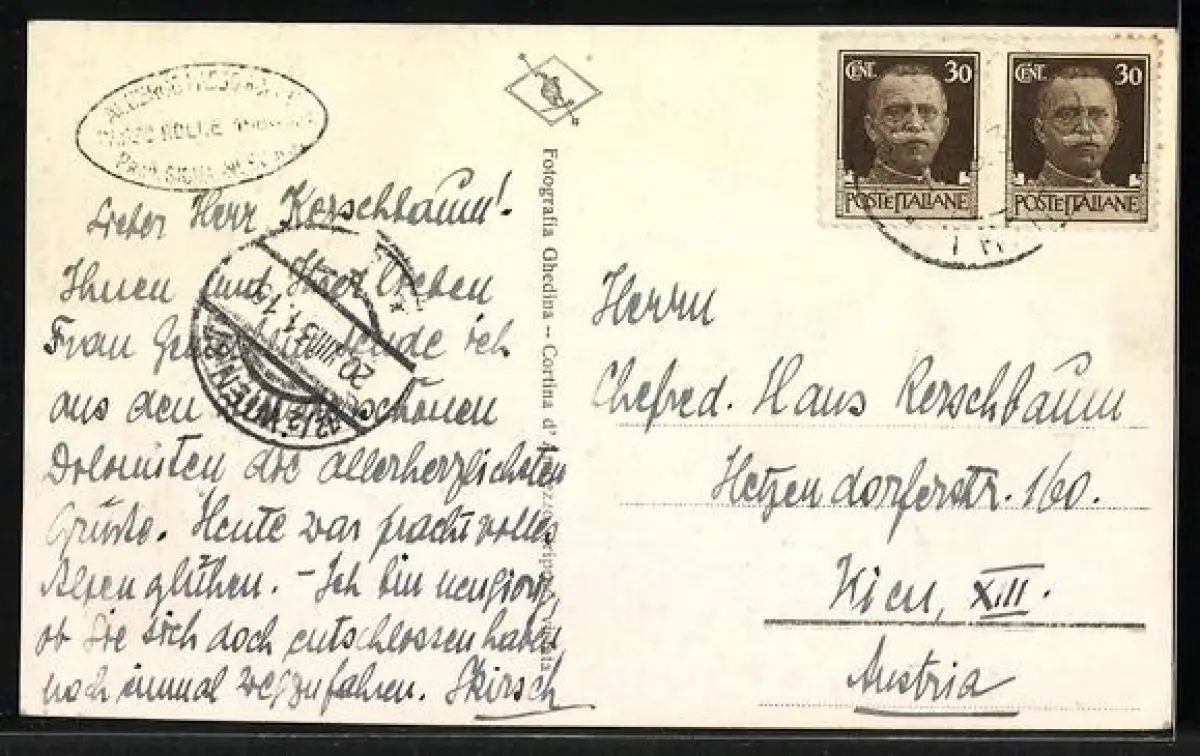 PASSO ROLLE
Lieber Herr Kerschbaum!
Ihnen und Ihrer lieben
Frau sende ich
aus den schönen
Dolomiten die allerherzlichsten
Grüße. Heute war prachtvolles
Alpenglühen. – Ich bin neugierig,
ob Sie sich doch entschlossen haben
noch einmal wegzufahren. Kirsch
12/2 WIEN
20.VIII.31.
Fotografia Ghedina -- Cortina d'
CENT. 30
POSTE ITALIANE
CENT. 30
POSTE ITALIANE
Herrn
Chefred. Hans Kerschbaum
Hetzendorferstr. 160.
Wien, XIII.
Austria